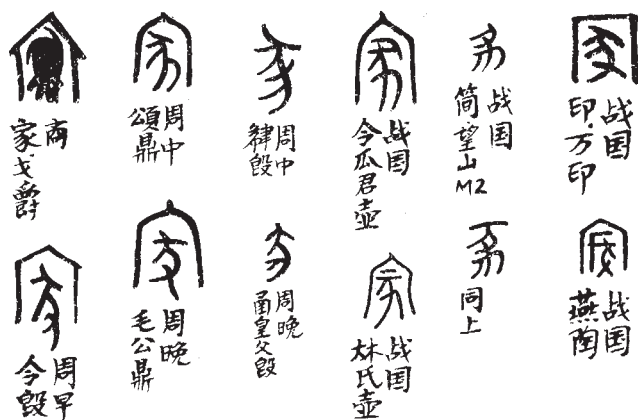 商
家戈爵
周中
頌鼎
周中
战国
令瓜君壶
战国
简望山M2
战国
印·万印
周早
令毁
周晚
毛公鼎
周晚
圅皇父毁
战国
氏壶
同上
战国
燕陶